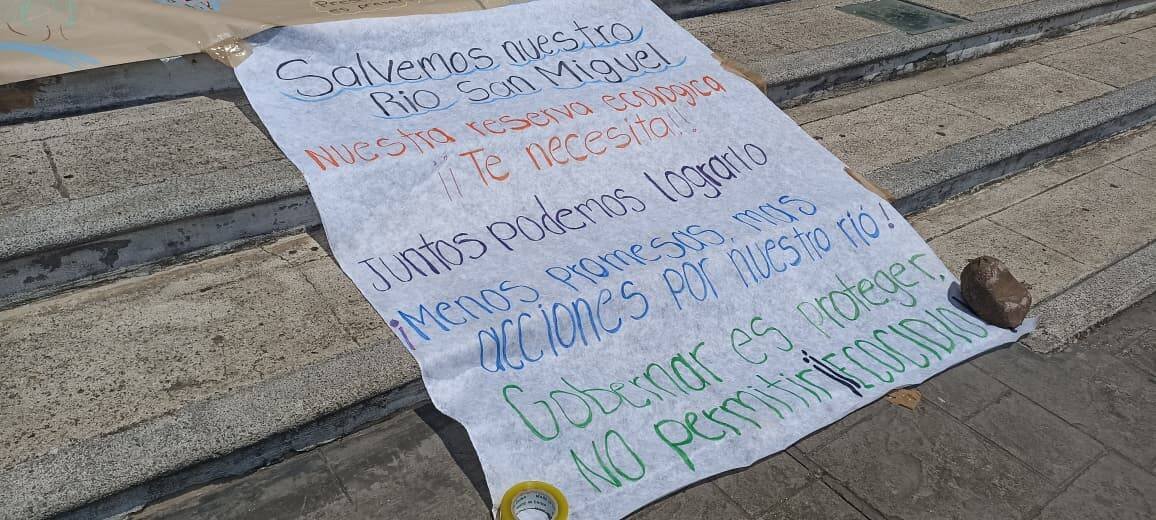 Salvemos nuestro
Rio San Miguel
Nuestra reserva ecologica
¡¡Te necesita!!
Juntos podemos lograrlo
¡Menos promesas mas
acciones por nuestro rió!
Gobernar es proteger,
NO permitir ¡¡ECOCIDIO